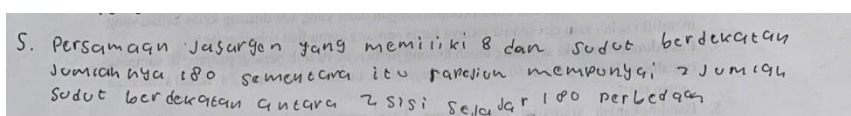 5. Persamaan Jajargen yang memiliki 8 dan sudut berdekatan
Jumlahnya 180 sementara itu mempunyai 2 Jumlah
Sudut berdekatan antara 2 sisi Sejajar 180 perbedaan